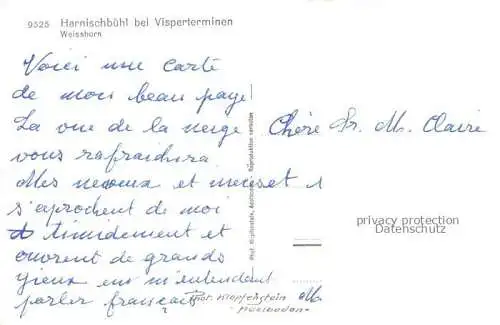 9525 Harnischbühl bei Visperterminen
Weisshorn
Voici une carte
de mon beau pays!
La vue de la neige
vous rafraidura
Mes neveux et nieces et
s'aprochent de moi
timidement et
ouvrent de grands
yieux en m'entendant
parler français
Chère Sr. M. Claire
privacy protection
Datenschutz
Phot. Klopfenstein, Adelboden. Reproduktion verboten
Phot. Klopfenstein
Adelboden
M.